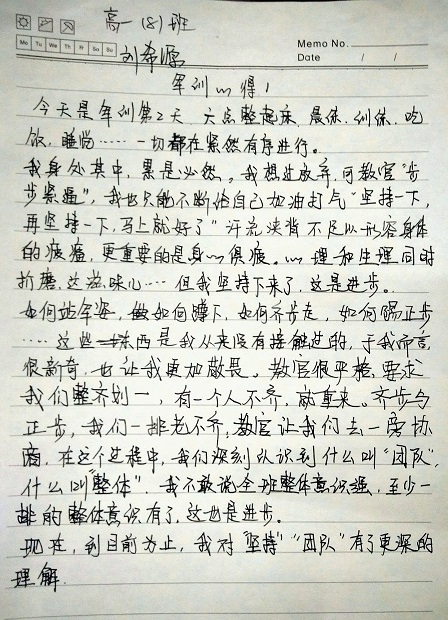 高一(8)班
Mo Tu We Th Fr Sa Su
刘希源
Memo No.
Date / /
军训心得1
今天是军训第2天,六点整起床、晨练、训练、吃
饭,睡觉……一切都在紧然有序进行。
我身处其中,累是必然。我想过放弃,可教官“步
步紧逼”,我也只能不断给自己加油打气“坚持一下,
再坚持一下,马上就好了”汗流浃背不足以形容身体
的疲惫,更重要的是身心俱疲。心理和生理同时
折磨,这滋味心……但我坚持下来了,这是进步。
如何站军姿,如何蹲下,如何齐步走,如何踢正步
……这些东西是我从来没有接触过的,于我而言,
很新奇,也让我更加敬畏。教官很严格,要求
我们整齐划一,有一个人不齐,就重来。齐步与
正步,我们一排老不齐,教官让我们去一旁协
商,在这个过程中,我们深刻认识到什么叫“团队”,
什么叫“整体”,我不敢说全班整体意识强,至少一
排的整体意识有了,这也是进步。
现在,到目前为止,我对“坚持”“团队”有了更深的
理解.